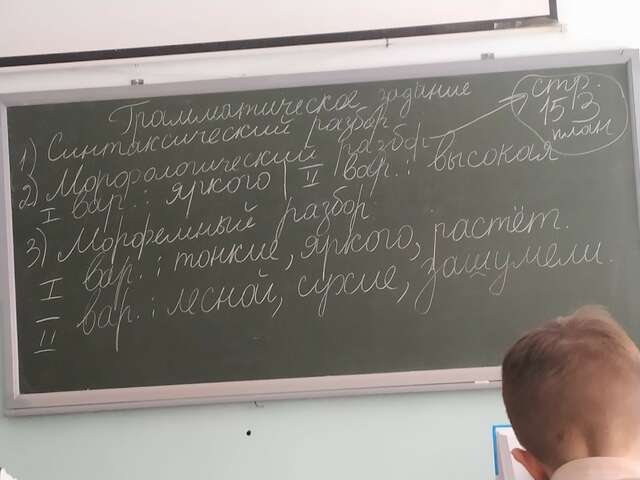 Грамматическое задание
1) Синтаксический разбор
2) Морфологический разбор
I вар.: яркого | II вар.: высокая
стр.
153
план
3) Морфемный разбор
I вар.: тонкие, яркого, растёт.
II вар.: лесной, сухие, зашумели.